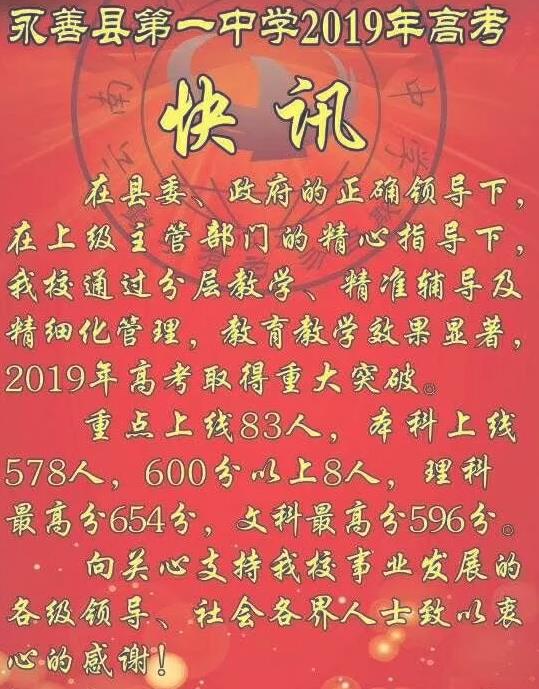 永善县第一中学2019年高考
快讯
在县委、政府的正确领导下，
在上级主管部门的精心指导下，
我校通过分层教学、精准辅导及
精细化管理，教育教学效果显著，
2019年高考取得重大突破。
重点上线83人，本科上线
578人，600分以上8人，理科
最高分654分，文科最高分596分。
向关心支持我校事业发展的
各级领导、社会各界人士致以衷
心的感谢！